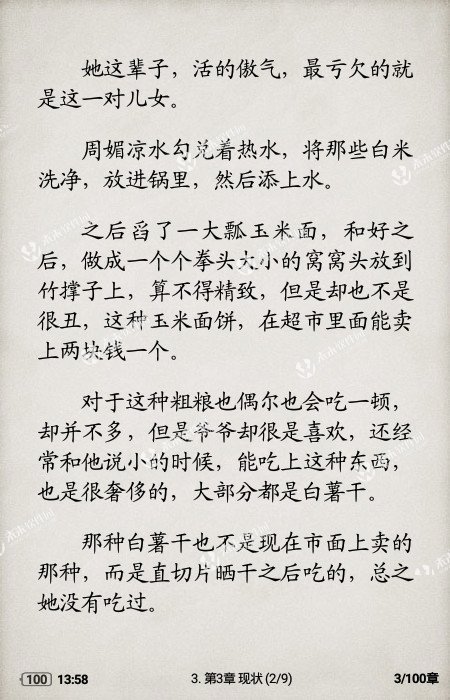 她这辈子，活的傲气，最亏欠的就
是这一对儿女。
周媚凉水勾兑着热水，将那些白米
洗净，放进锅里，然后添上水。
之后舀了一大瓢玉米面，和好之
后，做成一个个拳头大小的窝窝头放到
竹撑子上，算不得精致，但是却也不是
很丑，这种玉米面饼，在超市里面能卖
上两块钱一个。
对于这种粗粮也偶尔也会吃一顿，
却并不多，但是爷爷却很是喜欢，还经
常和他说小的时候，能吃上这种东西，
也是很奢侈的，大部分都是白薯干。
那种白薯干也不是现在市面上卖的
那种，而是直切片晒干之后吃的，总之
她没有吃过。
100 13:58 3. 第3章 现状 (2/9) 3/100章